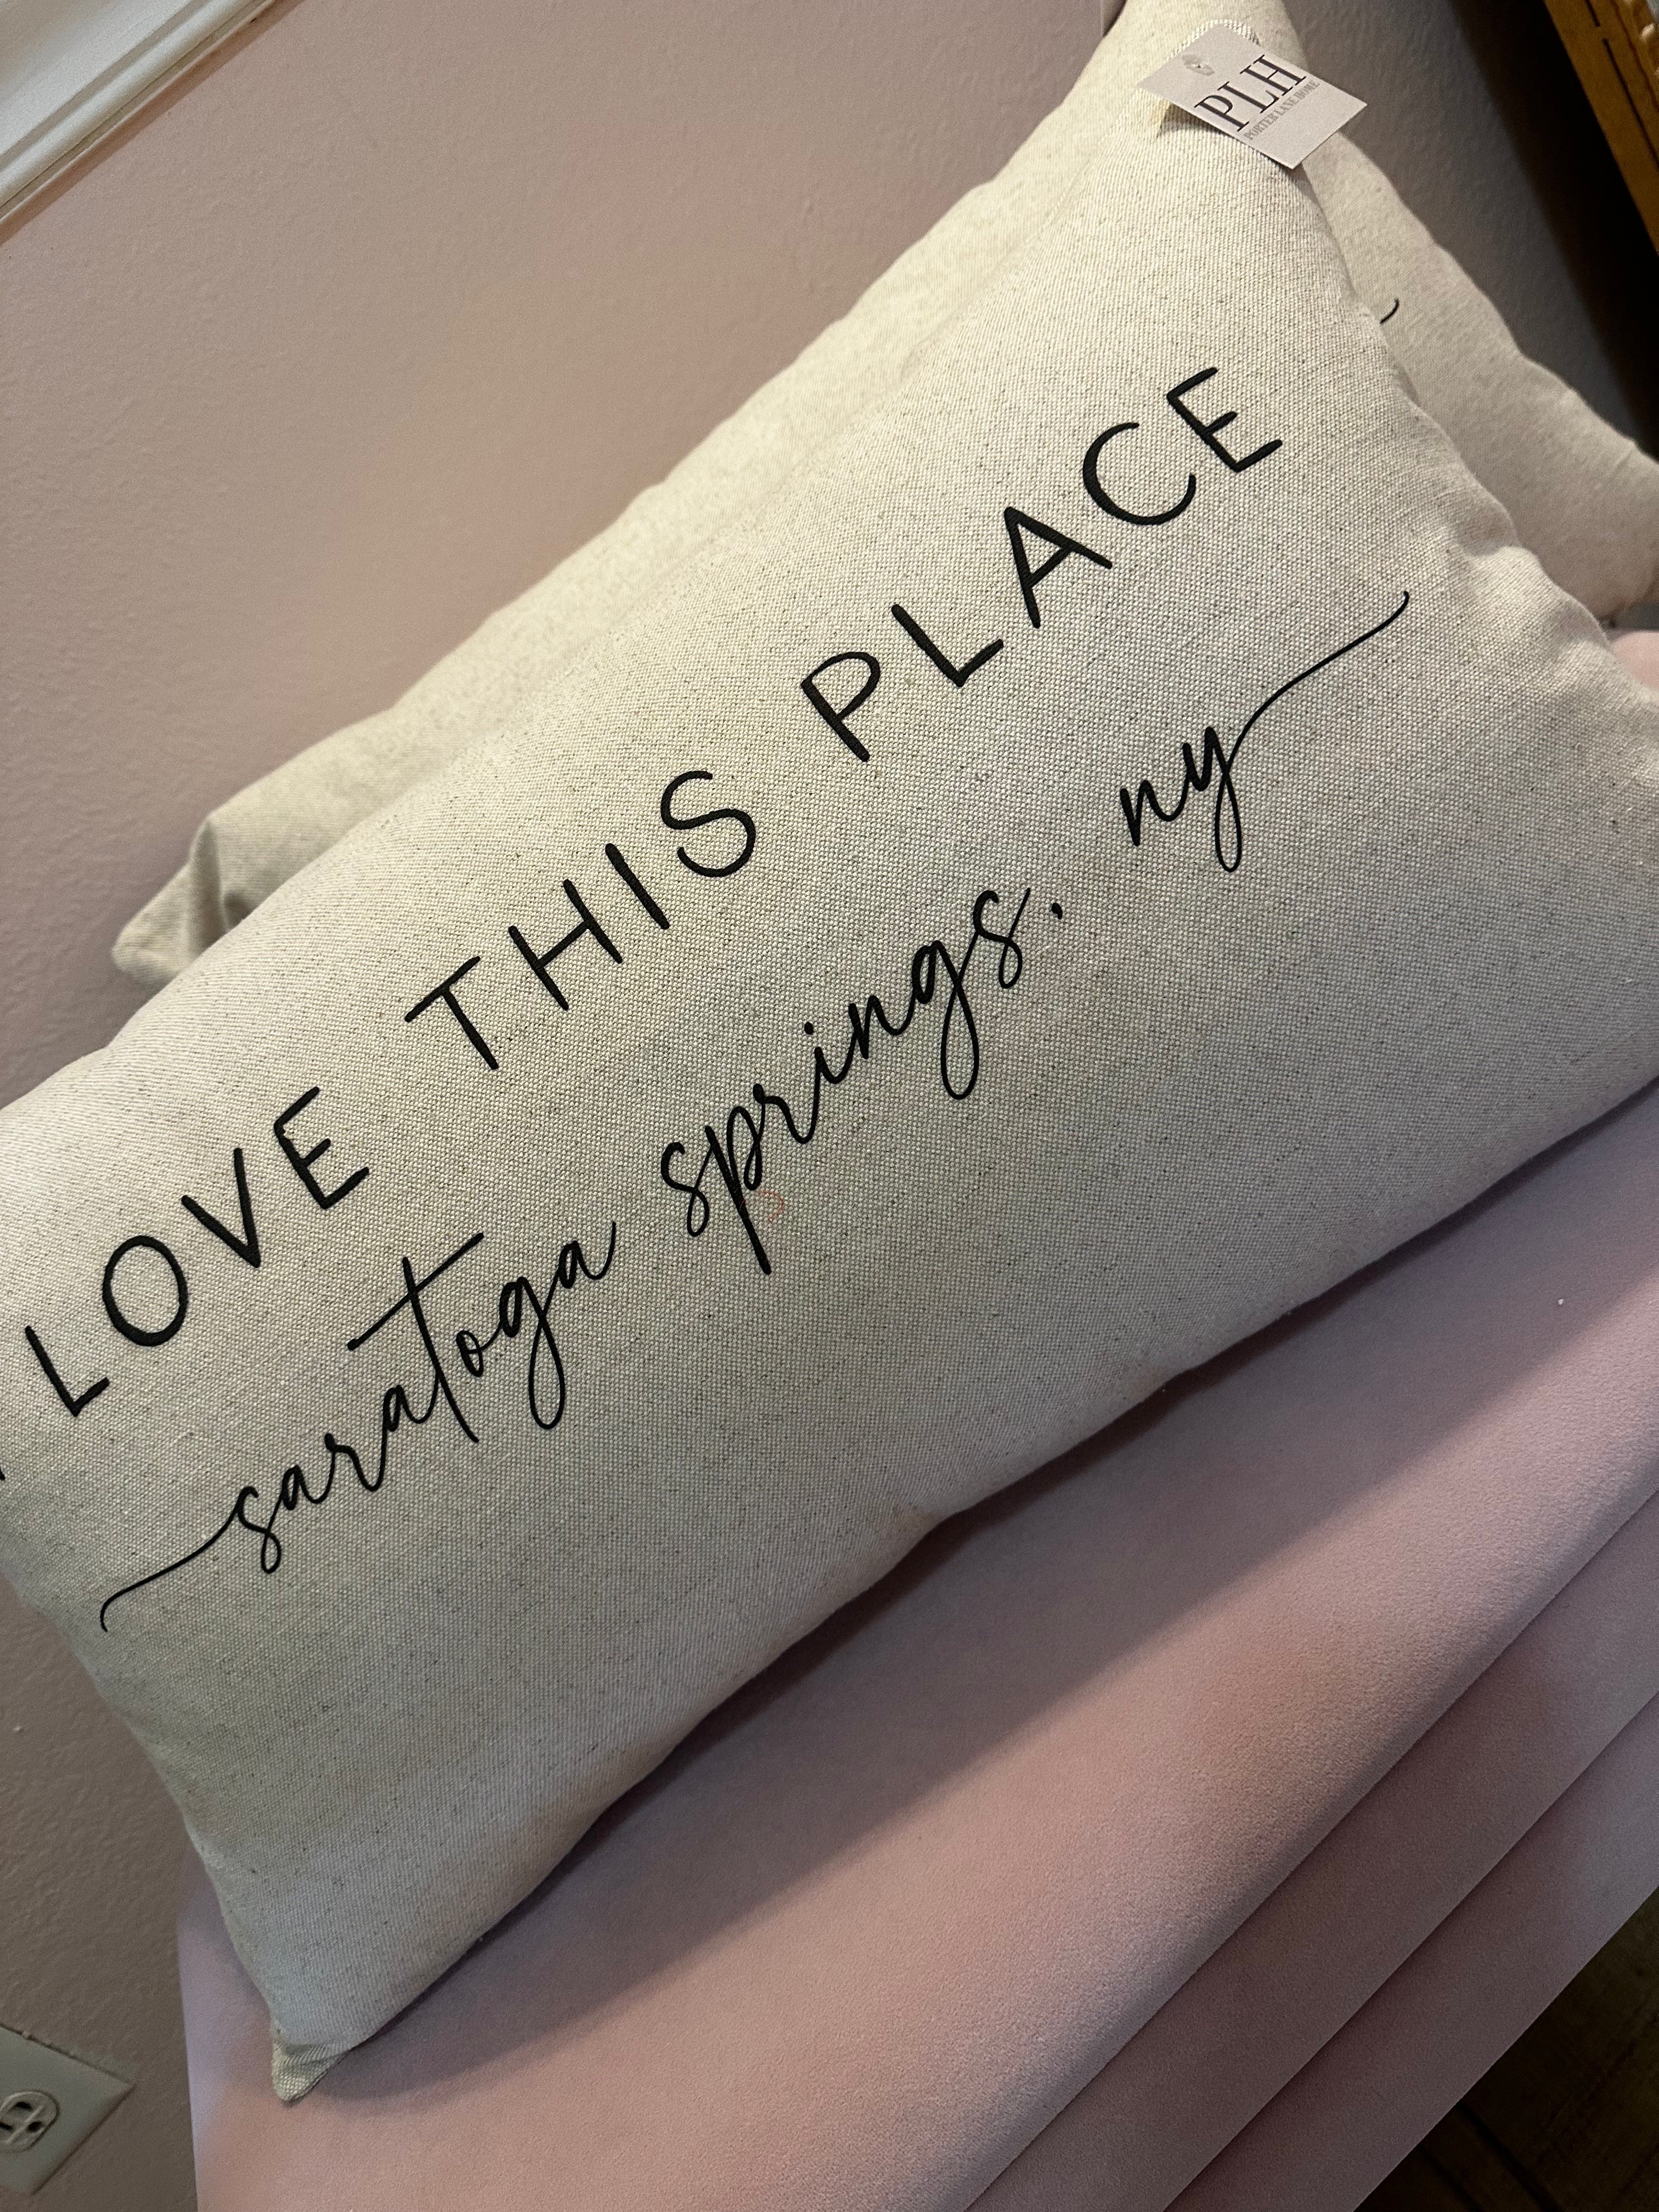 PLH
PORTER LANE HOME
LOVE THIS PLACE
saratoga springs. ny